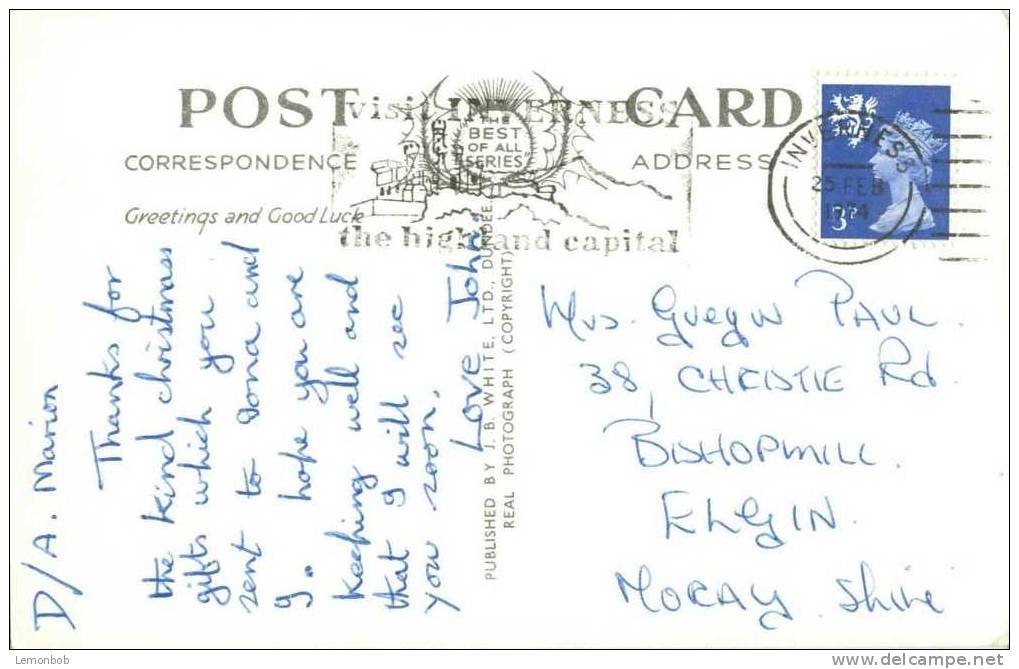 POST CARD
visit INVERNESS
THE
BEST
OF ALL
SERIES
CORRESPONDENCE
ADDRESS
Greetings and Good Luck
the highland capital
INVERNESS
25 FEB
1974
3P
PUBLISHED BY J. B. WHITE, LTD., DUNDEE.
REAL PHOTOGRAPH (COPYRIGHT)
D/A. Marion
Thanks for
the kind christmas
gifts which you
sent to Iona and
I. hope you are
keeping well and
that I will see
you soon.
Love John.
Mrs. PAUL.
38, CHRISTIE Rd.
BISHOPMILL.
ELGIN.
MORAY. Shire
Lemonbob
delcampe.net